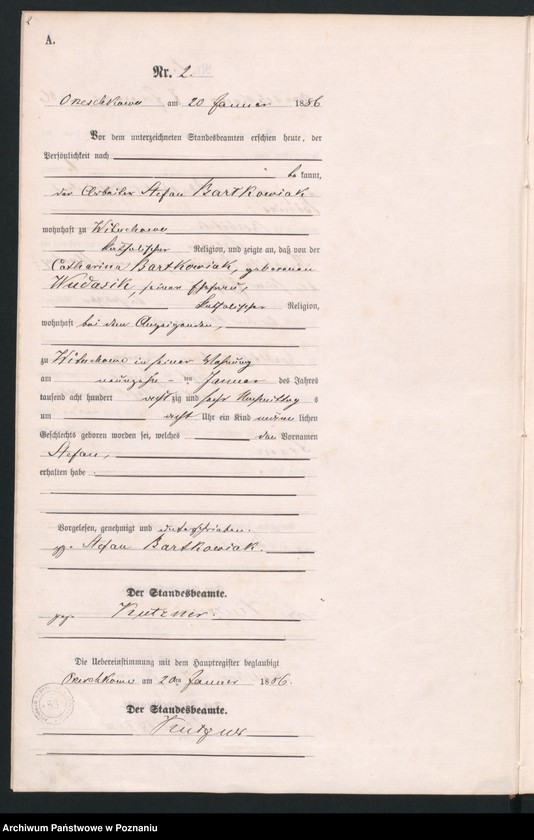 2
A.
Nr. 2.
Orzeschkowo am 20 Januar 1886
Vor dem unterzeichneten Standesbeamten erschien heute, der
Persönlichkeit nach
be kannt,
der Arbeiter Stefan Bartkowiak
wohnhaft zu Wituchowo
katholischer Religion, und zeigte an, daß von der
Catharina Bartkowiak, geborenen
Wudasik, seiner Ehefrau,
katholischer Religion,
wohnhaft bei dem Anzeigenden,
zu Wituchowo in seiner Wohnung
am neunzehn ten Januar des Jahres
tausend acht hundert acht zig und sechs Nachmittag s
um acht Uhr ein Kind männ lichen
Geschlechts geboren worden sei, welches den Vornamen
Stefan,
erhalten habe
Vorgelesen, genehmigt und unterschrieben.
gez. Stefan Bartkowiak.
Der Standesbeamte.
gez. Kutzner.
Die Uebereinstimmung mit dem Hauptregister beglaubigt
Orzeschkowo am 20ten Januar 1886.
Der Standesbeamte.
Kutzner
Archiwum Państwowe w Poznaniu